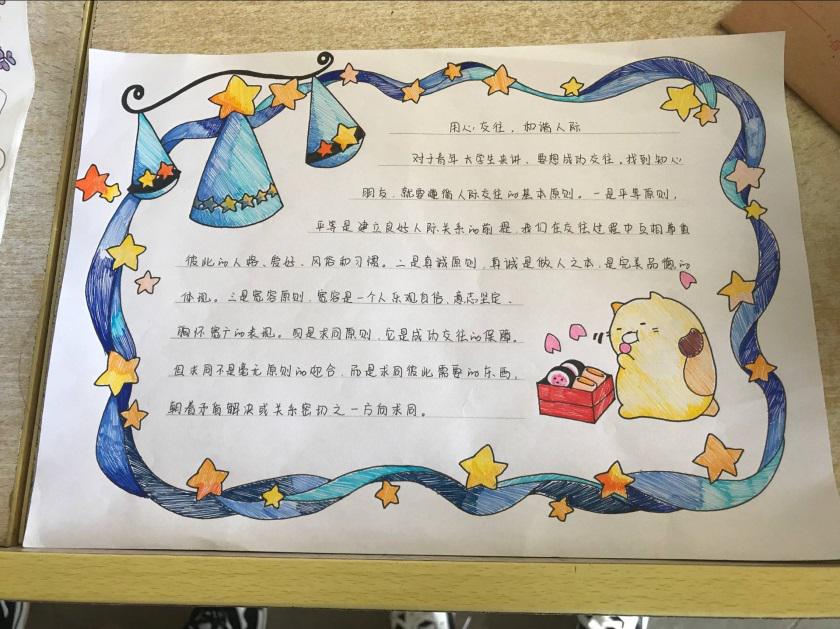 用心交往,和谐人际
对于青年大学生来讲,要想成功交往,找到知心
朋友,就要懂得人际交往的基本原则。一是平等原则,
平等是建立良好人际关系的前提,我们在交往过程中互相尊重
彼此的人格、爱好、风俗和习惯。二是真诚原则,真诚是做人之本,是完美品德的
体现。三是宽容原则,宽容是一个人乐观自信、意志坚定、
胸怀宽广的表现。四是求同原则,它是成功交往的保障。
但求同不是毫无原则的迎合,而是求同彼此需要的东西,
朝着矛盾解决或关系密切之一方向求同。